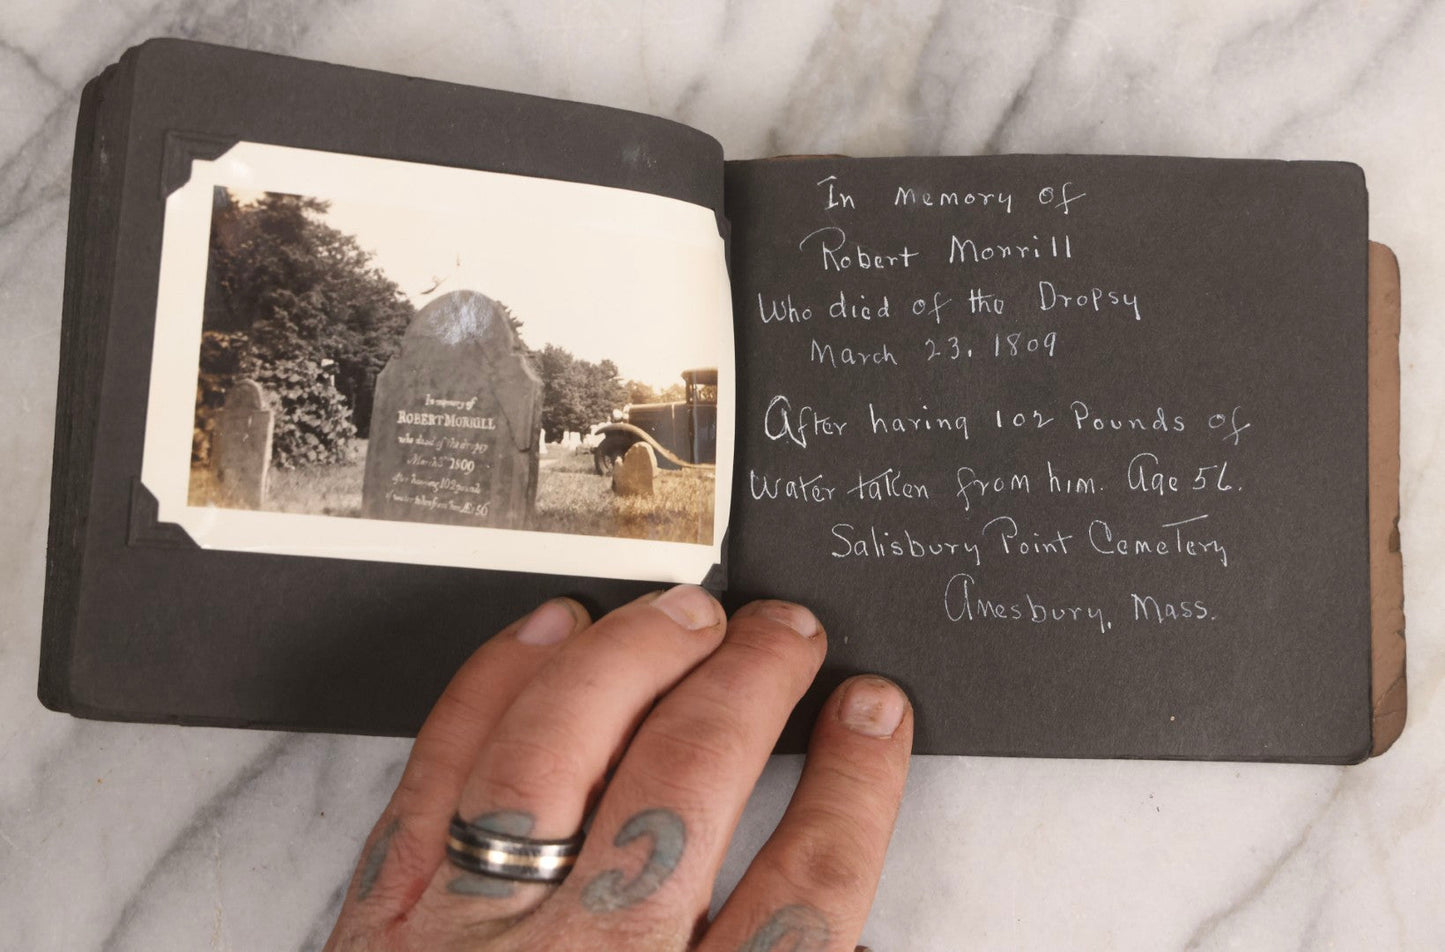 In memory of
ROBERT MORRILL
who died of the dropsy
March 1809
after having 102 pounds
of water taken from him Æ 56
In memory of
Robert Morrill
Who died of the Dropsy
March 23, 1809
After having 102 Pounds of
Water taken from him. Age 56.
Salisbury Point Cemetery
Amesbury, Mass.